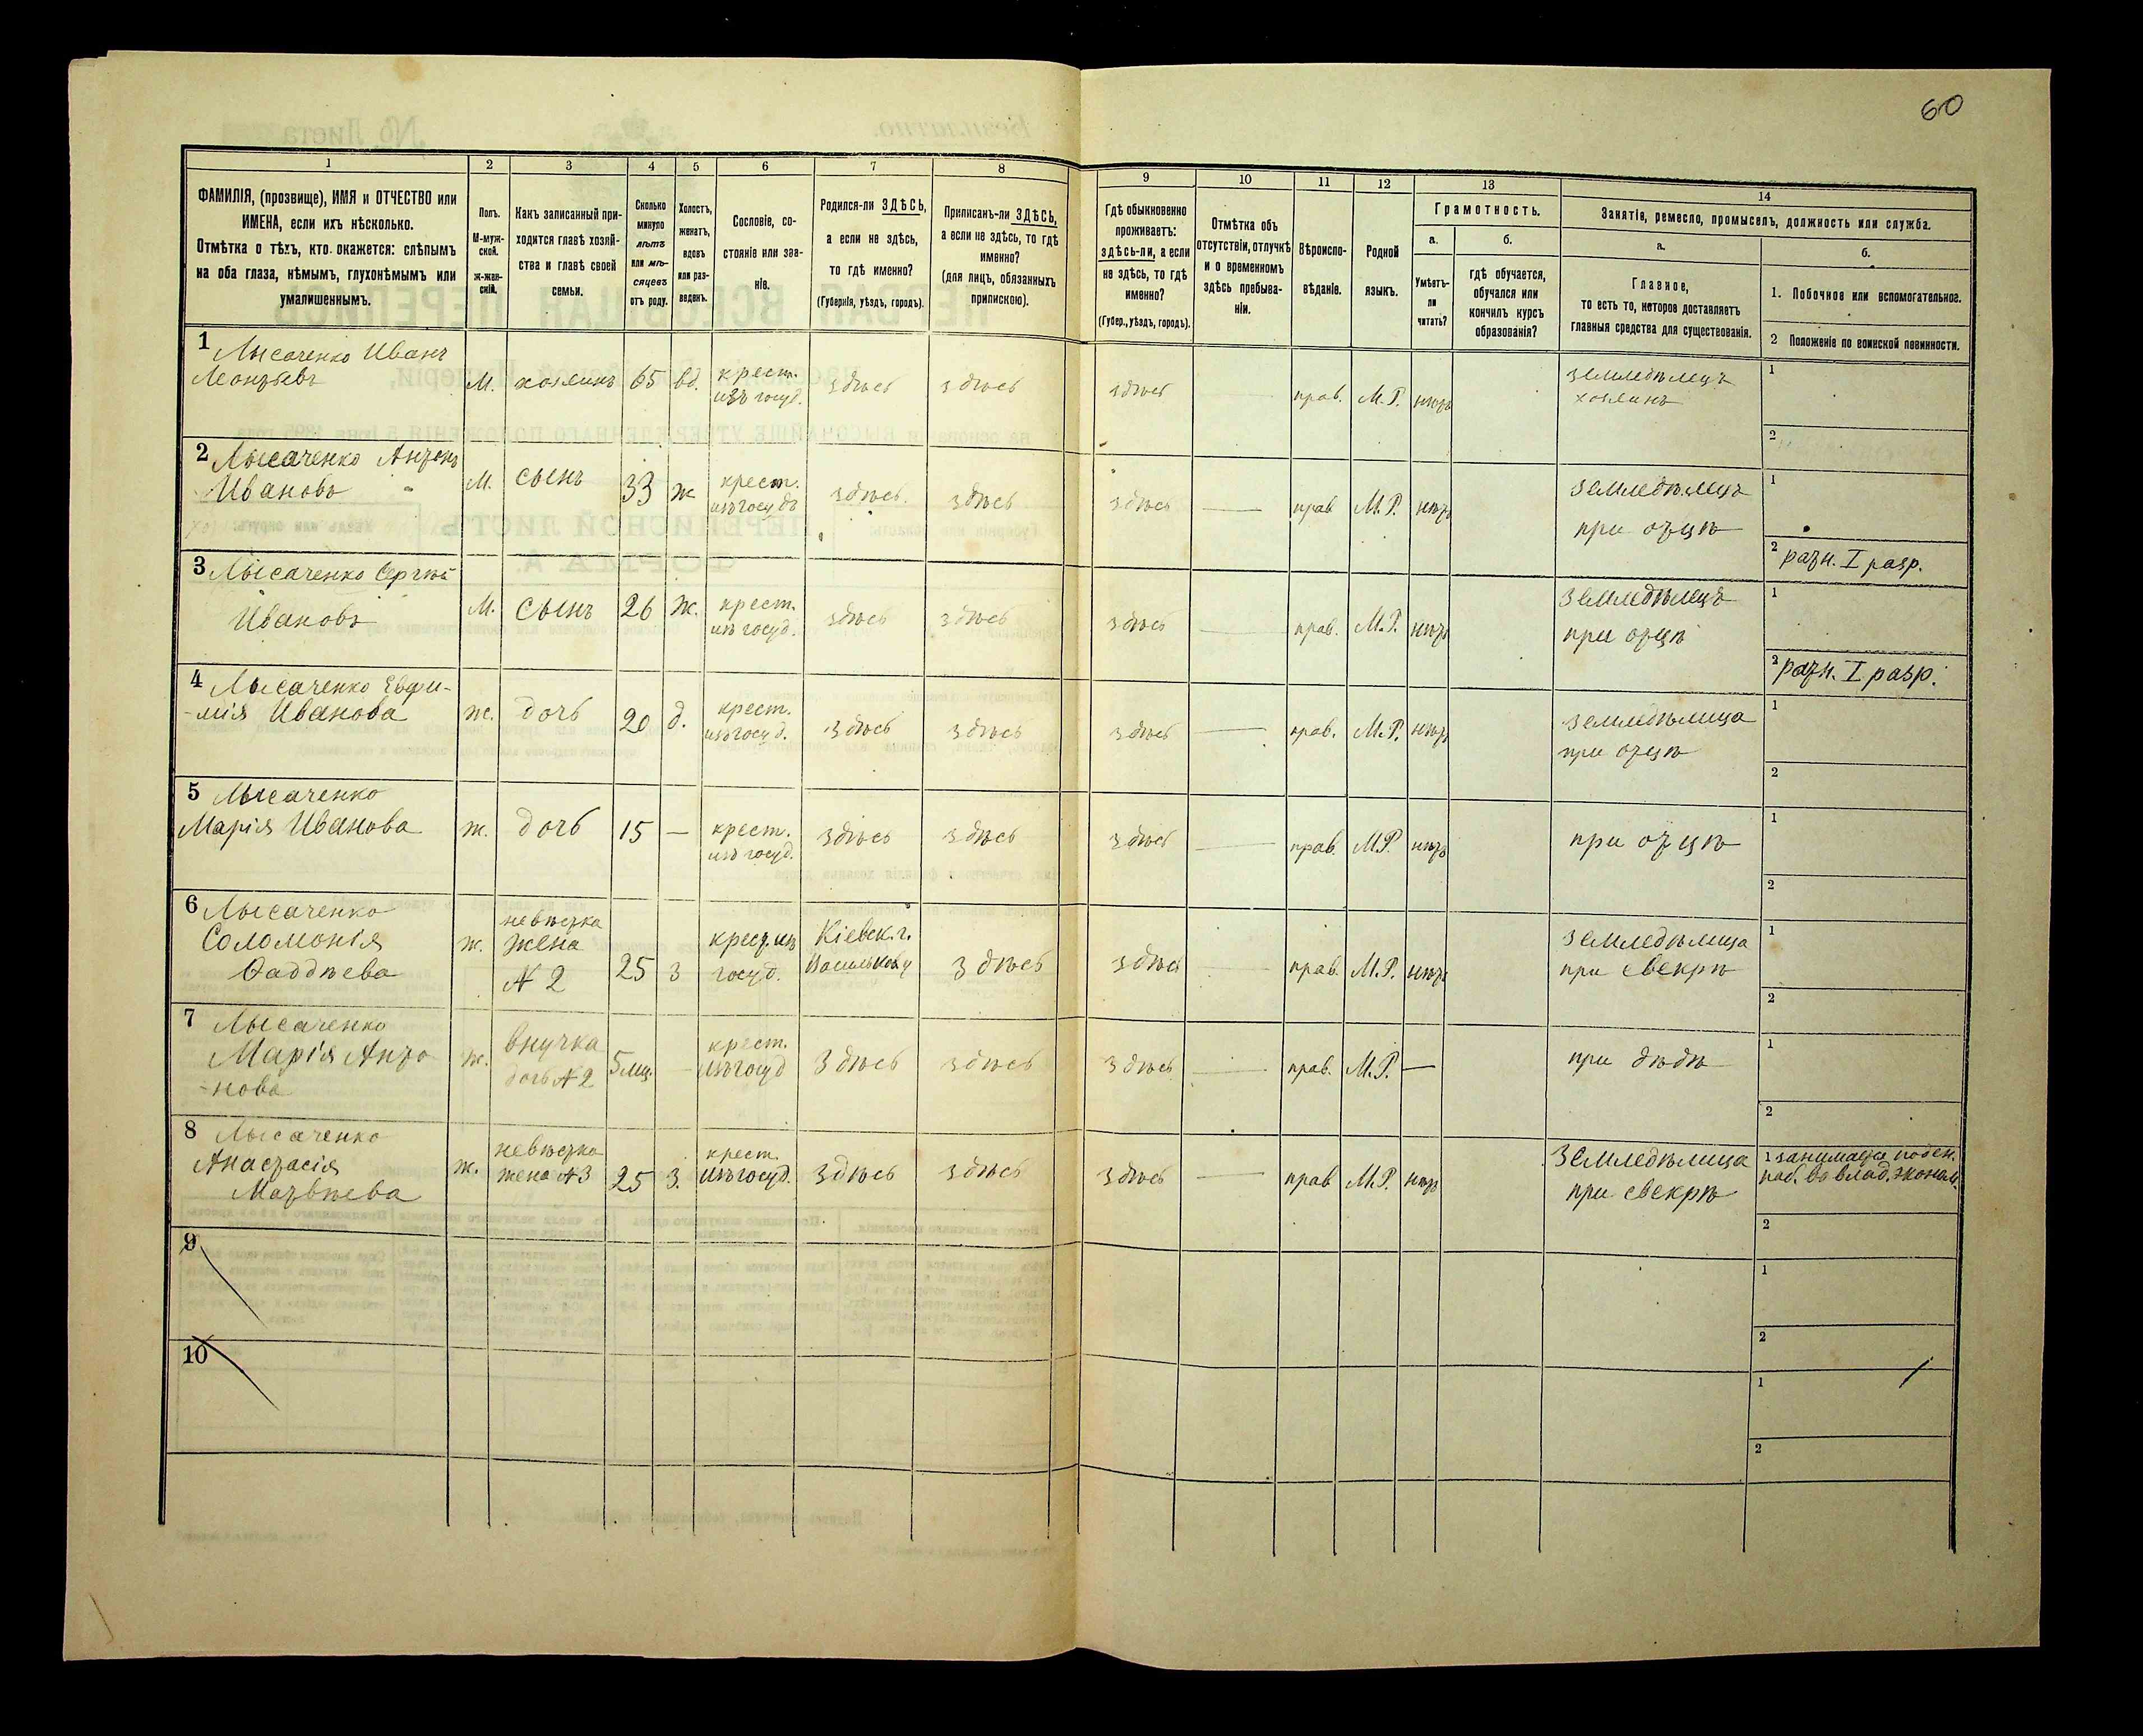 60
1
2
3
4
5
6
7
8
9
10
11
12
13
14
ФАМИЛІЯ, (прозвище), ИМЯ и ОТЧЕСТВО или
ИМЕНА, если ихъ нѣсколько.
Отмѣтка о тѣхъ, кто окажется: слѣпымъ
на оба глаза, нѣмымъ, глухонѣмымъ или
умалишеннымъ.
Полъ.
М-муж-
ской.
Ж-жен-
скій.
Какъ записанный при-
ходится главѣ хозяй-
ства и главѣ своей
семьи.
Сколько
минуло
лѣтъ
или мѣ-
сяцевъ
отъ роду.
Холостъ,
женатъ,
вдовъ
или раз-
веденъ.
Сословіе, со-
стояніе или зва-
ніе.
Родился-ли ЗДѢСЬ,
а если не здѣсь,
то гдѣ именно?
(Губернія, уѣздъ, городъ).
Приписанъ-ли ЗДѢСЬ,
а если не здѣсь, то гдѣ
именно?
(для лицъ, обязанныхъ
припискою).
Гдѣ обыкновенно
проживаетъ:
здѣсь-ли, а если
не здѣсь, то гдѣ
именно?
(Губер., уѣздъ, городъ).
Отмѣтка объ
отсутствіи, отлучкѣ
и о временномъ
здѣсь пребыва-
ніи.
Вѣроиспо-
вѣданіе.
Родной
языкъ.
Грамотность.
а.
Умѣетъ-
ли
читать?
б.
гдѣ обучается,
обучался или
кончилъ курсъ
образованія?
Занятіе, ремесло, промыселъ, должность или служба.
а.
Главное,
то есть то, которое доставляетъ
главныя средства для существованія.
б.
1. Побочное или вспомогательное.
2 Положеніе по воинской повинности.
1 Лысаченко Иванъ
Леонтьевъ
М. хозяинъ 65 вд. крест.
изъ госуд.
здѣсь здѣсь здѣсь прав. М.Р. нѣтъ
земледѣлецъ
хозяинъ
1
2
2 Лысаченко Антонъ
Ивановъ
М. сынъ 33 ж крест.
изъ госудъ
здѣсь здѣсь здѣсь — прав М.Р. нѣтъ
земледѣлецъ
при отцѣ
1
2 ратн. I разр.
3 Лысаченко Сергѣй
Ивановъ
М. сынъ 26 ж. крест.
изъ госуд.
здѣсь здѣсь здѣсь — прав. М.Р. нѣтъ
земледѣлецъ
при отцѣ
1
2 ратн. I разр.
4 Лысаченко Евфи-
-мія Иванова
ж. дочь 20 д. крест.
изъ госуд.
здѣсь здѣсь здѣсь — прав. М.Р. нѣтъ
земледѣлица
при отцѣ
1
2
5 Лысаченко
Марія Иванова
ж. дочь 15 — крест.
изъ госуд.
здѣсь здѣсь здѣсь — прав. М.Р. нѣтъ
при отцѣ
1
2
6 Лысаченко
Соломонія
Фаддѣева
ж. невѣстка
жена
№ 2
25 з крест. изъ
госуд.
Кіевск. г.
Васильков. у
здѣсь здѣсь — прав. М.Р. нѣтъ
земледѣлица
при свекрѣ
1
2
7 Лысаченко
Марія Анто
-нова
ж. внучка
дочь № 2
5 мц. — крест.
изъ госуд
здѣсь здѣсь здѣсь — прав. М.Р. —
при дѣдѣ
1
2
8 Лысаченко
Анастасія
Матвѣева
ж. невѣстка
жена № 3
25 з. крест.
изъ госуд.
здѣсь здѣсь здѣсь — прав М.Р. нѣтъ
земледѣлица
при свекрѣ
1 занимается поден.
раб. въ влад. эконом.
2
9
1
2
10
1
2